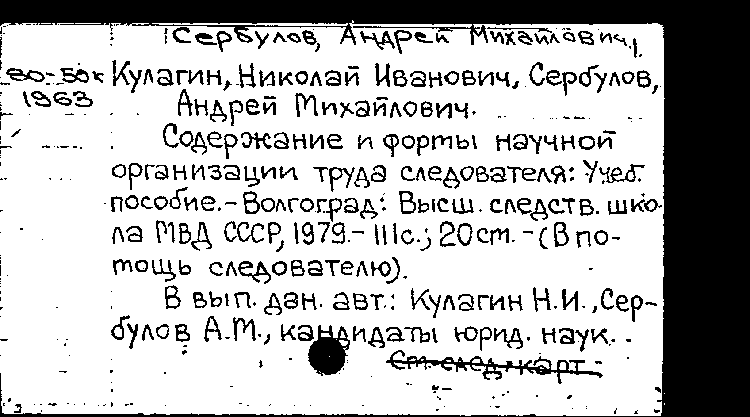 Сербулов, Андрей Михайлович,
80-50к
1963
Кулагин, Николай Иванович, Сербулов,
Андрей Михайлович.
Содержание и формы научной
организации труда следователя: Учеб.
пособие.- Волгоград: Высш. следств. шко-
ла МВД СССР, 1979.- 111с.; 20см. - (В по-
мощь следователю).
В вып. дан. авт.: Кулагин Н.И., Сер-
булов А.М., кандидаты юрид. наук.
См. след. карт.